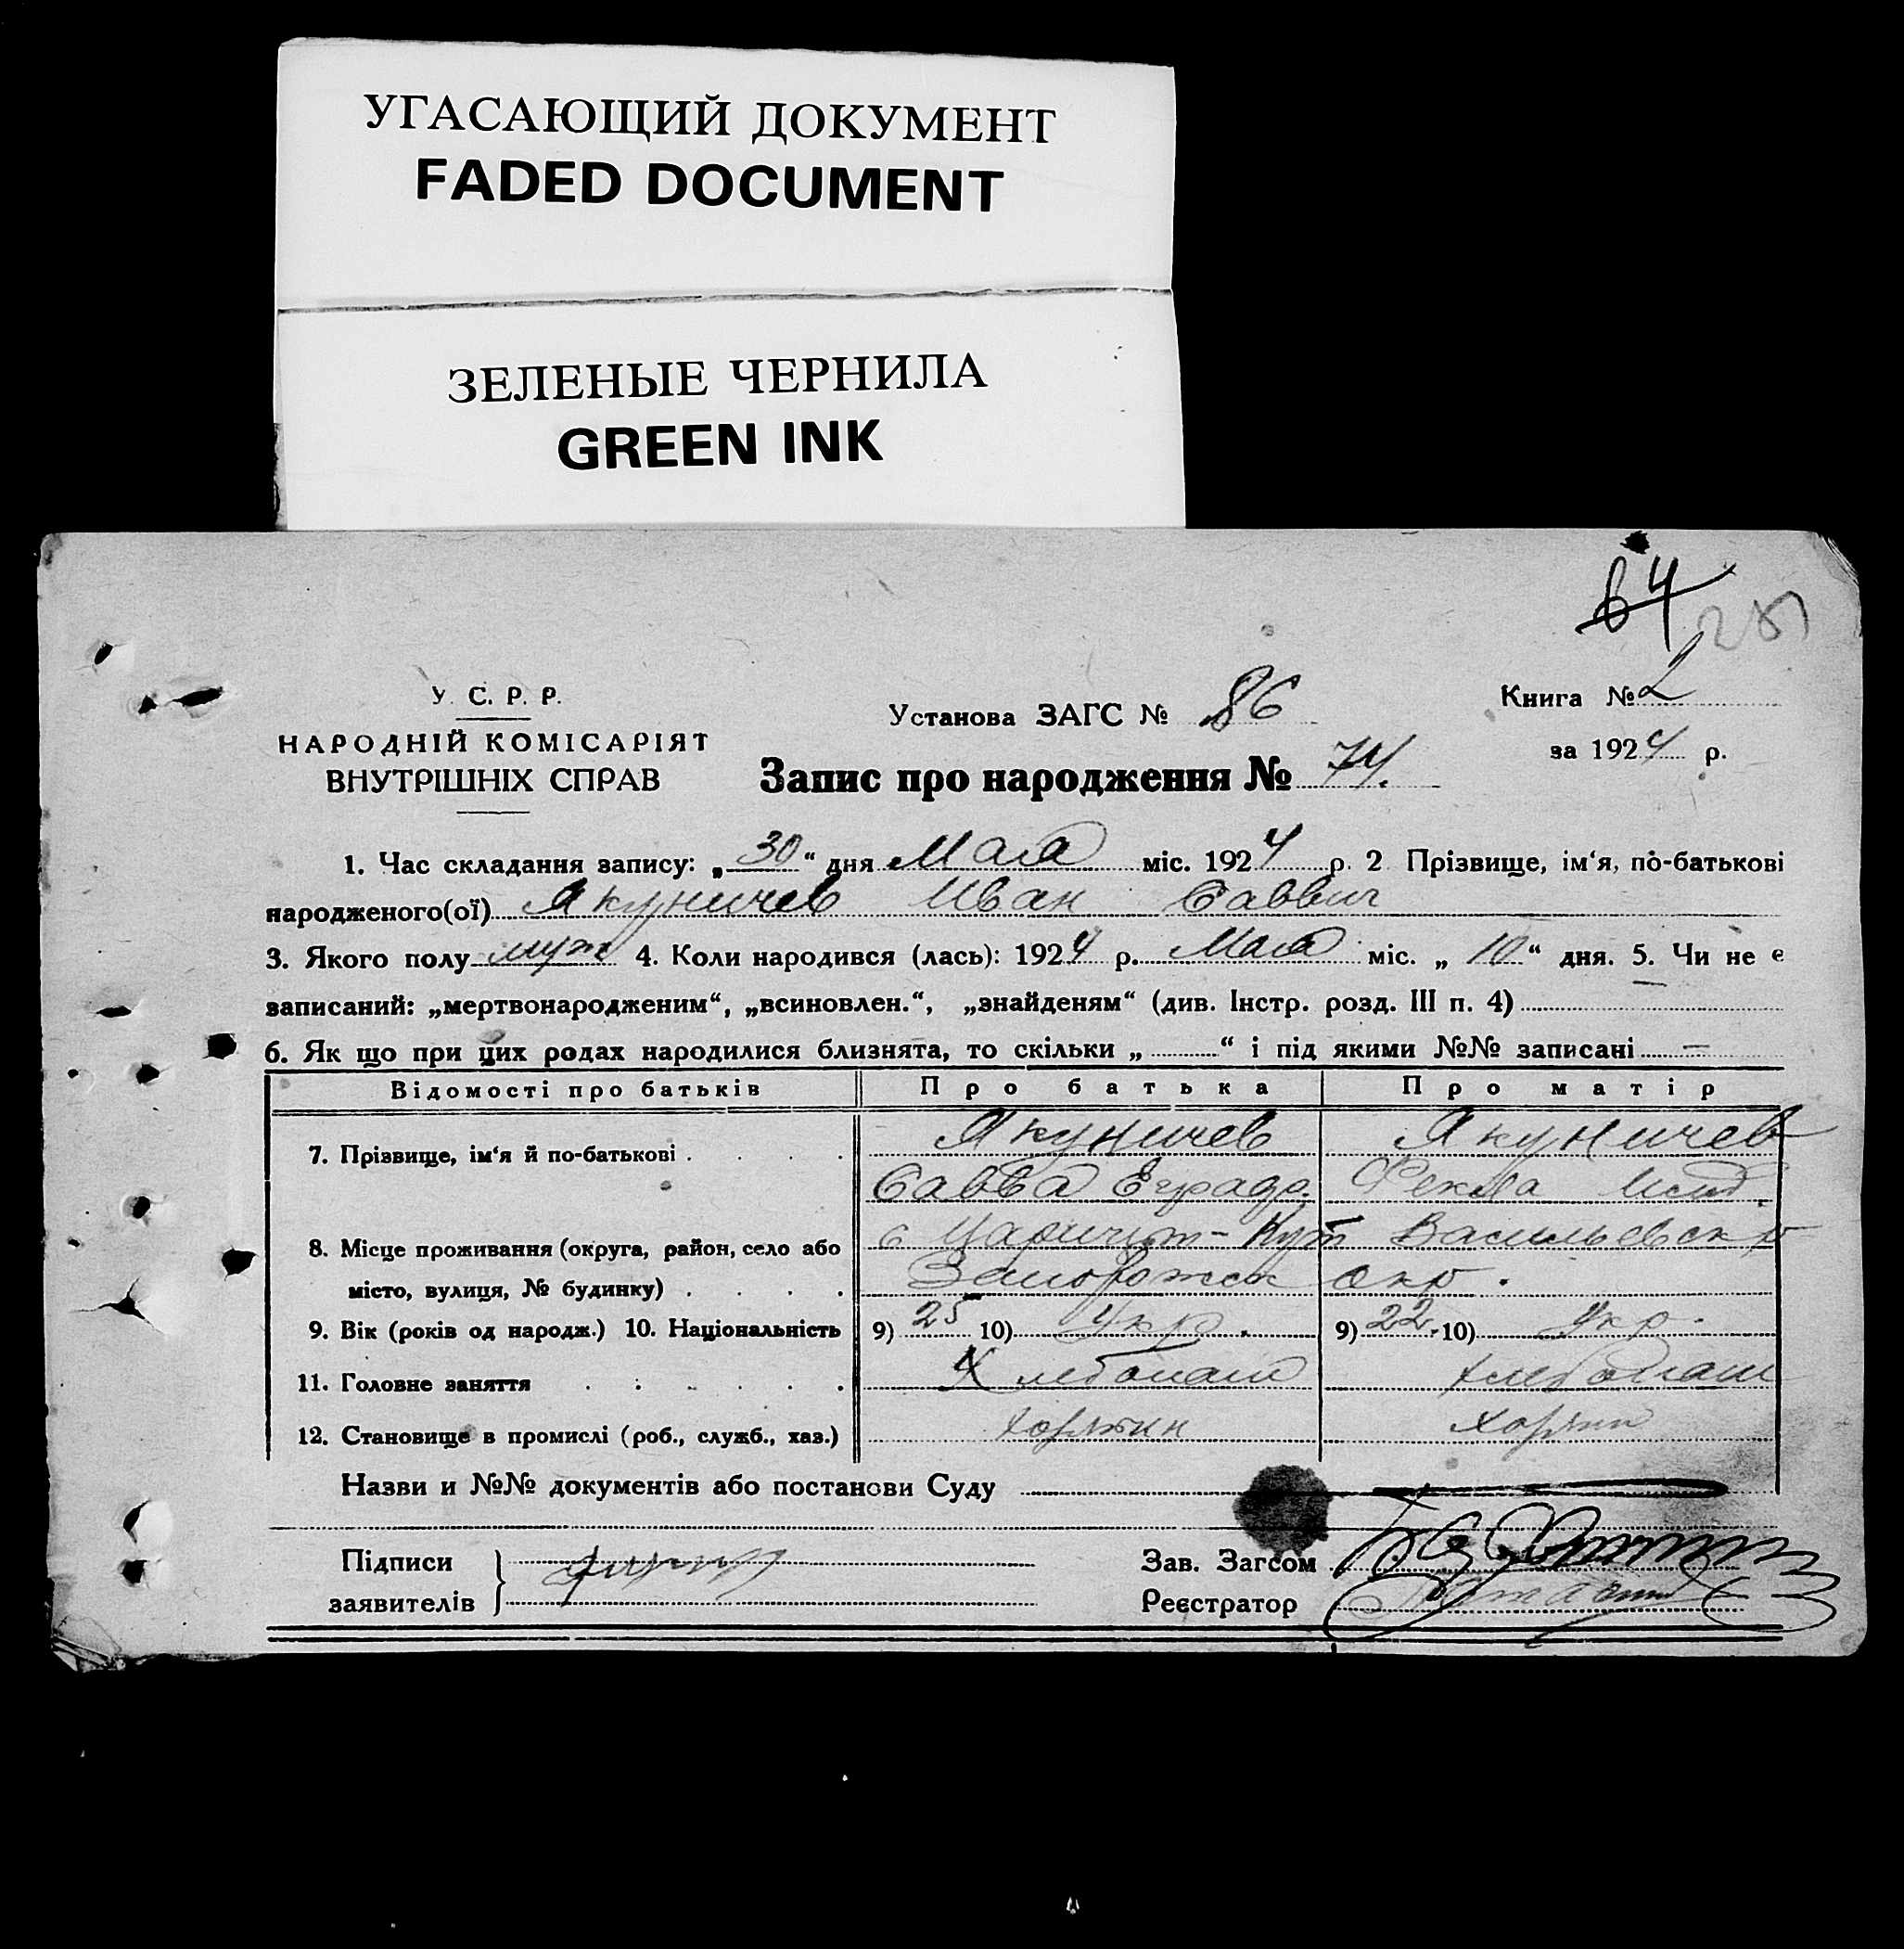 УГАСАЮЩИЙ ДОКУМЕНТ
FADED DOCUMENT
ЗЕЛЕНЫЕ ЧЕРНИЛА
GREEN INK
64
У. С. Р. Р.
НАРОДНІЙ КОМІСАРІЯТ
ВНУТРІШНІХ СПРАВ
Установа ЗАГС № 86
Книга № 2
за 1924 р.
Запис про народження № 74.
1. Час складання запису: „30“ дня Мая міс. 1924 р. 2 Прізвище, ім‘я, по-батькові
народженого(ої) Якуничев Иван Саввич
3. Якого полу муж 4. Коли народився (лась): 1924 р. Мая міс. „10“ дня. 5. Чи не є
записаний: „мертвонародженим“, „всиновлен.“, „знайденям“ (див. Інстр. розд. III п. 4) —
6. Як що при цих родах народилися близнята, то скільки „ “ і під якими №№ записані —
Відомості про батьків Про батька Про матір
7. Прізвище, ім‘я й по-батькові Якуничев Якуничев
Савва Фекла
8. Місце проживання (округа, район, село або с Царичин-Кут Васильевск р
місто, вулиця, № будинку) Запорожск окр.
9. Вік (років од народж.) 10. Національність 9) 25 10) Укр. 9) 22. 10) Укр.
11. Головне заняття Хлебопаш Хлебопаш
12. Становище в промислі (роб., служб., хаз.) Хозяин Хозяин
Назви и №№ документів або постанови Суду
Підписи
заявителів
Зав. Загсом
Реєстратор